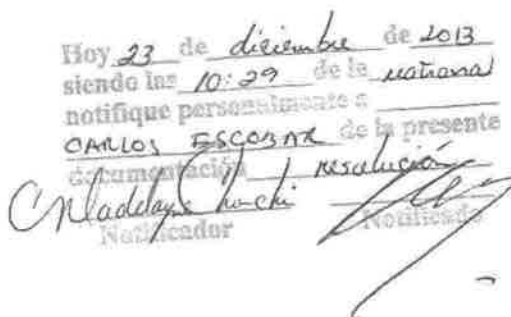 Hoy 23 de diciembre de 2013
siendo las 10:29 de la mañana
notifique personalmente a
CARLOS ESCOBAR de la presente
documentación resolución
Notificador Notificado